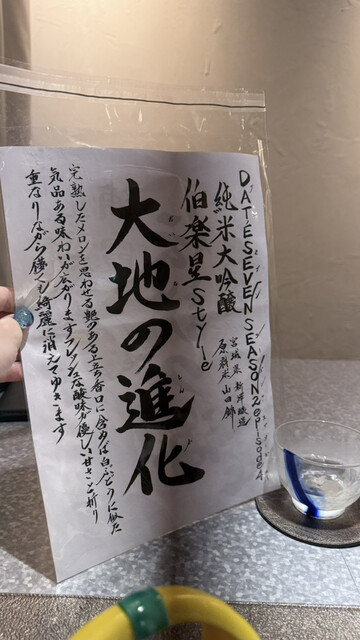 DATE SEVEN SEASON2 episode4
純米大吟醸
宮城県 新澤醸造
原料米 山田錦
伯楽星Style
大地の進化
完熟したメロンを思わせる艶のある立ち香口に含めば白ぶどうに似た
気品ある味わいが広がりますフレッシュな酸味が優しい甘さと折り
重なりながら儚くも綺麗に消えてゆきます